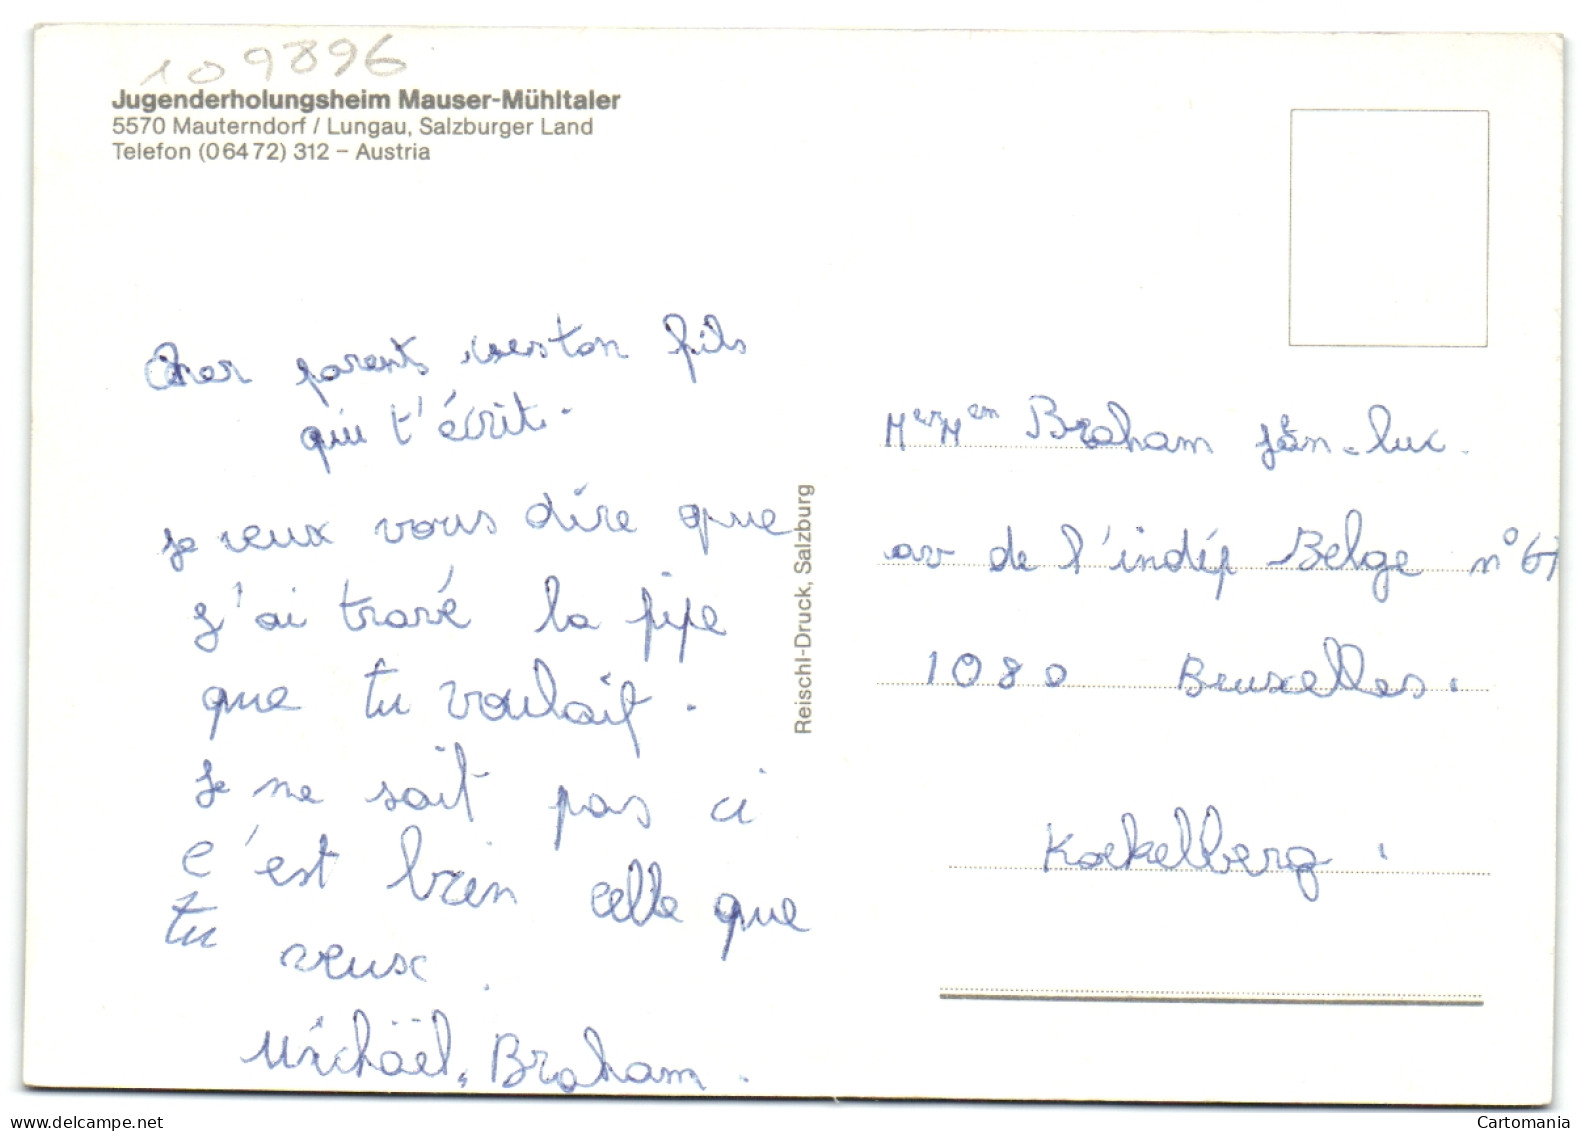 109896
Jugenderholungsheim Mauser-Mühltaler
5570 Mauterndorf / Lungau, Salzburger Land
Telefon (06472) 312 – Austria
Cher parents c'est ton fils
qui t'écrit.
je veux vous dire que
j'ai travé la pipe
que tu voulait.
Je ne sait pas ci
c'est bien celle que
tu veux.
Michaël, Braham.
Reischl-Druck, Salzburg
Braham Jean-luc.
av de l'indép Belge n° 67
1080 Bruxelles.
Koekelberg.
Cartomania